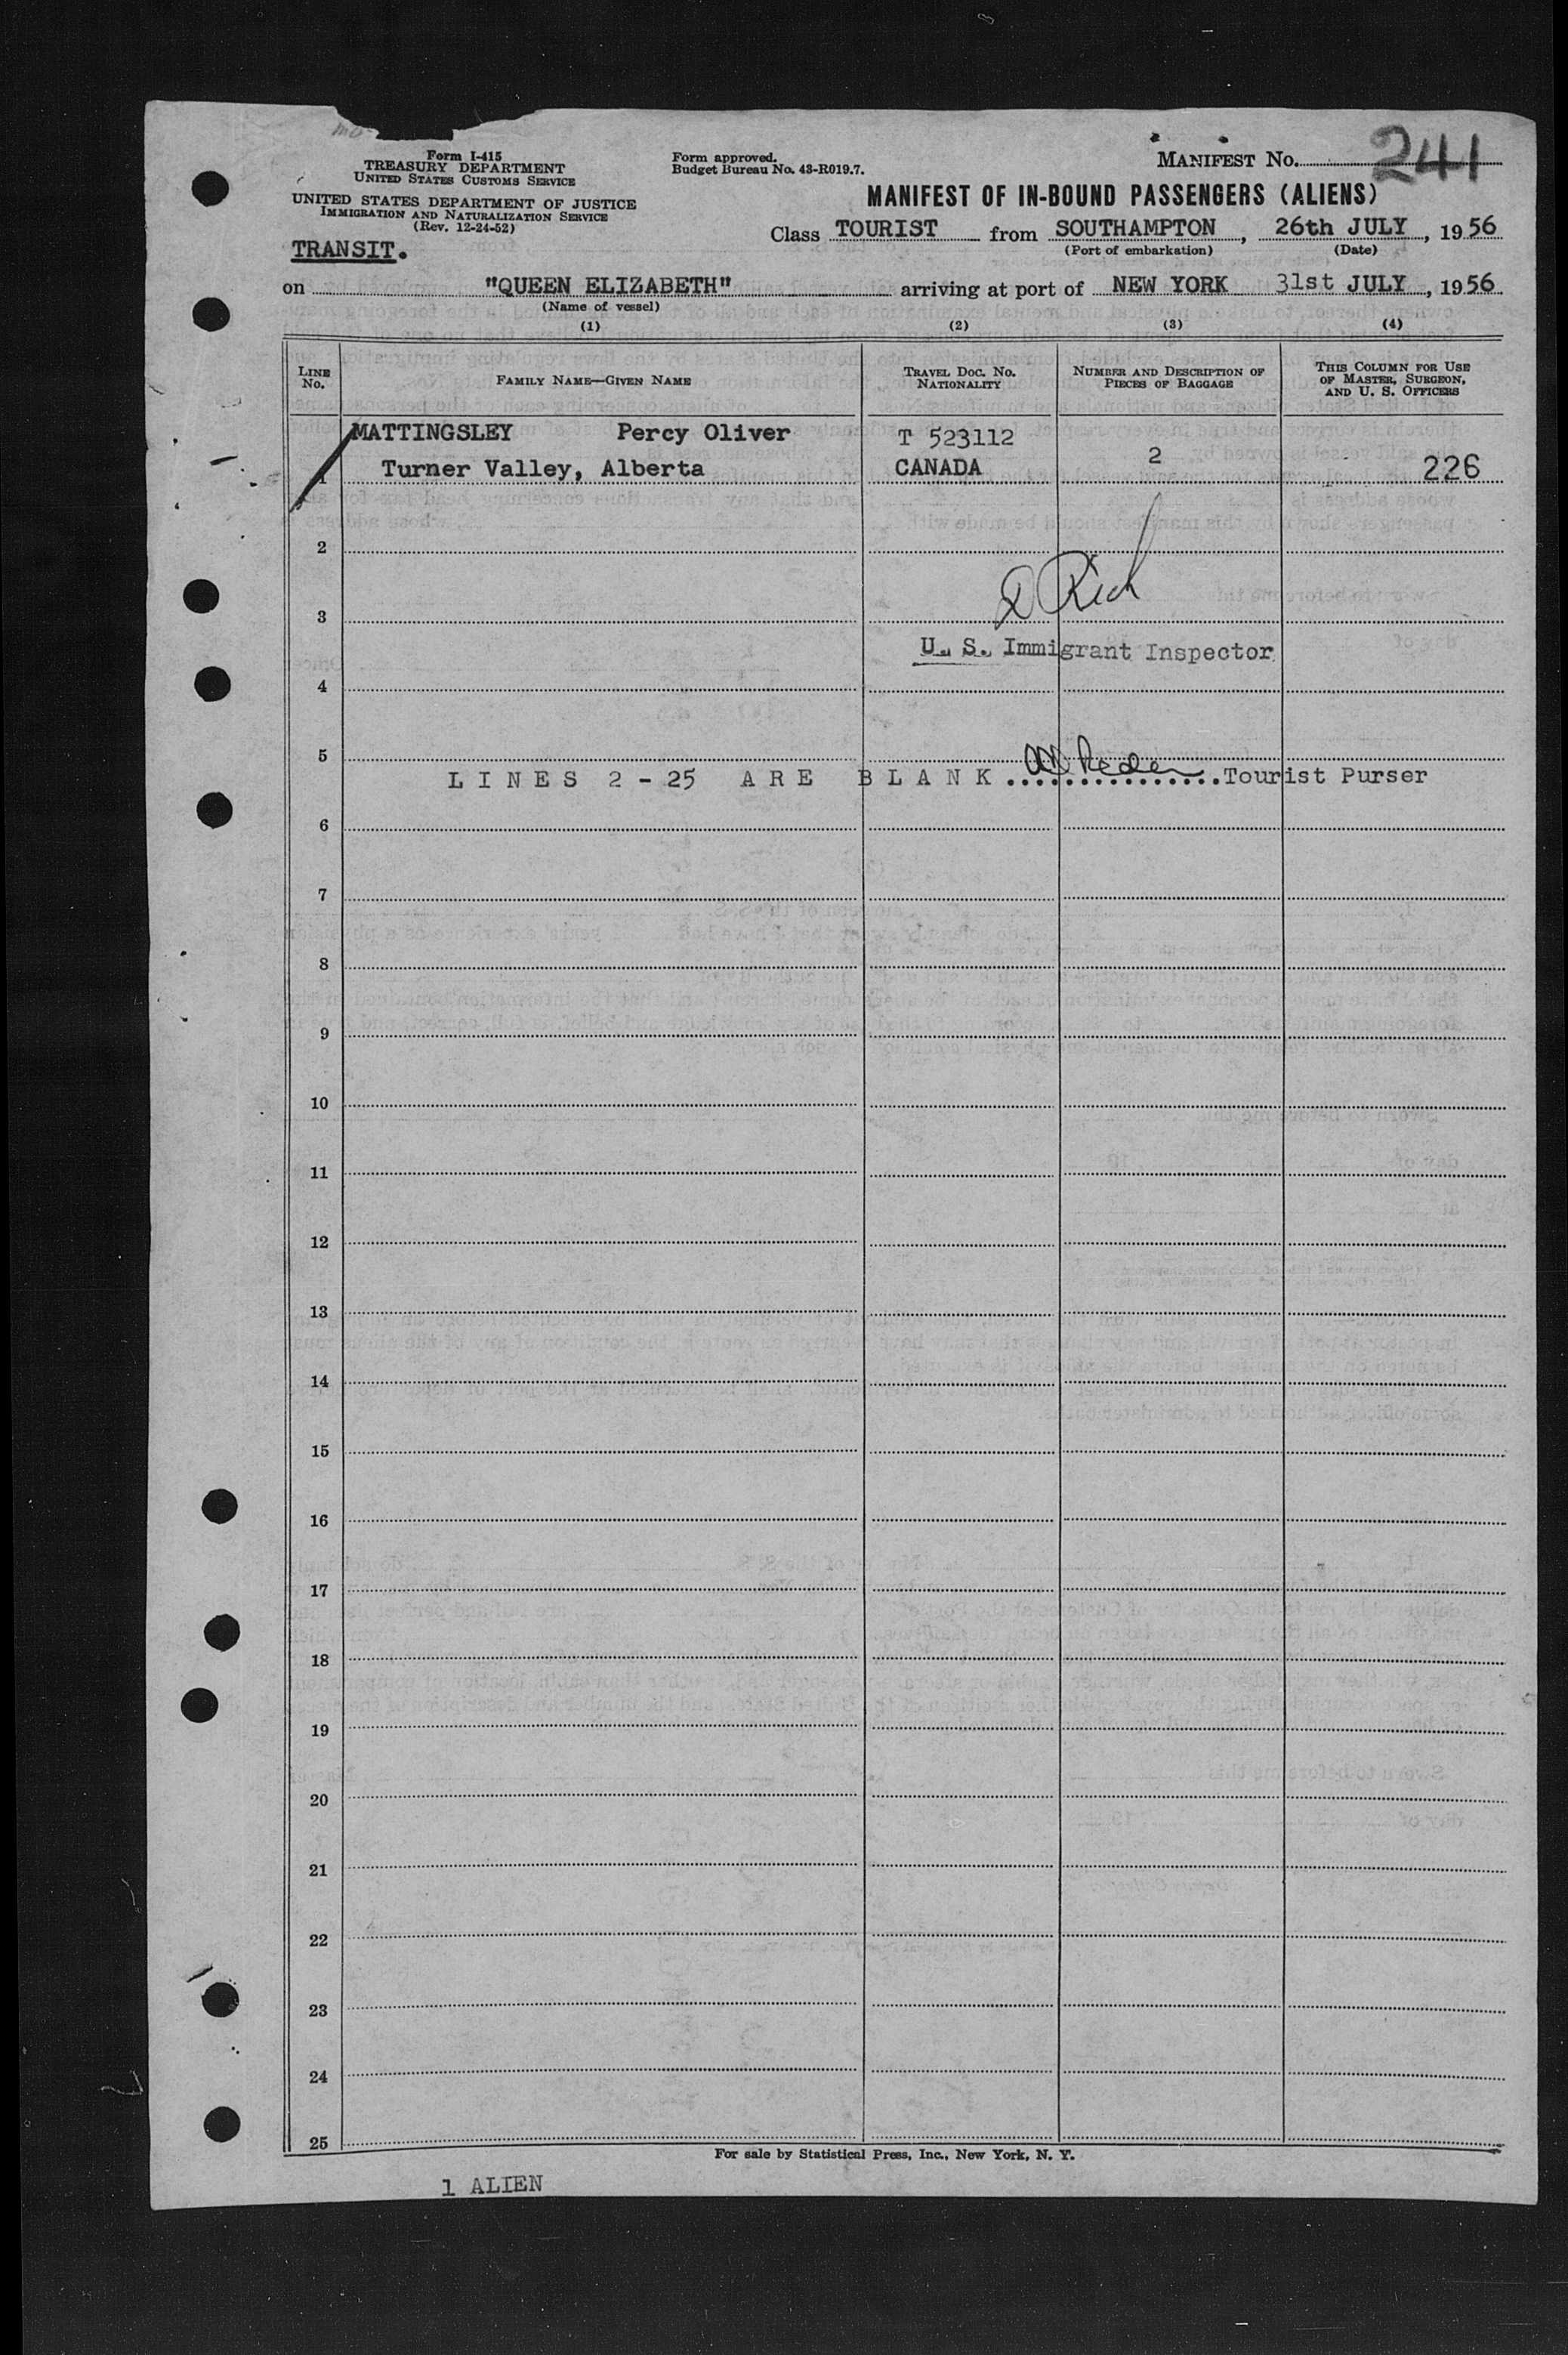 Form I-415
TREASURY DEPARTMENT
UNITED STATES CUSTOMS SERVICE
UNITED STATES DEPARTMENT OF JUSTICE
IMMIGRATION AND NATURALIZATION SERVICE
(Rev. 12-24-52)
TRANSIT.
Form approved.
Budget Bureau No. 43-R019.7.
MANIFEST No. 241
MANIFEST OF IN-BOUND PASSENGERS (ALIENS)
Class TOURIST from SOUTHAMPTON, 26th JULY, 1956
(Port of embarkation) (Date)
on "QUEEN ELIZABETH" arriving at port of NEW YORK 31st JULY, 1956
(Name of vessel)
(1) (2) (3) (4)
LINE No. FAMILY NAME—GIVEN NAME TRAVEL DOC. NO. NATIONALITY NUMBER AND DESCRIPTION OF PIECES OF BAGGAGE THIS COLUMN FOR USE OF MASTER, SURGEON, AND U. S. OFFICERS
MATTINGSLEY Percy Oliver T 523112
1 Turner Valley, Alberta CANADA 2 226
2
D Rich
3
U. S. Immigrant Inspector
4
5
LINES 2-25 ARE BLANK................Tourist Purser
6
7
8
9
10
11
12
13
14
15
16
17
18
19
20
21
22
23
24
25
For sale by Statistical Press, Inc., New York, N. Y.
1 ALIEN